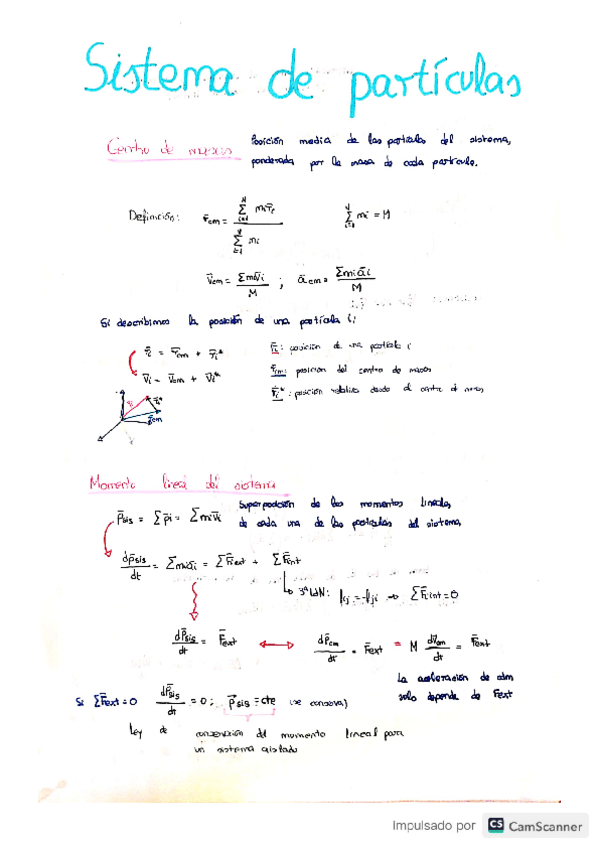 Sistema de partículas
Centro de masas
Posición media de las partículas del sistema,
ponderada por la masa de cada partícula.
Definición: r̄cm = Σ(i=1, N) mi r̄i / Σ(i=1, N) mi    Σ(i=1, N) mi = M
v̄cm = Σmi v̄i / M ; ācm = Σmi āi / M
Si describimos la posición de una partícula i:
r̄i = r̄cm + r̄i*
v̄i = v̄cm + v̄i*
r̄i: posición de una partícula i
r̄cm: posición del centro de masas
r̄i*: posición relativa desde el centro de masas
r̄i r̄i*
r̄cm
Momento lineal del sistema
p̄sis = Σp̄i = Σmi v̄i
Superposición de los momentos lineales
de cada una de las partículas del sistema
dp̄sis/dt = Σmi āi = ΣF̄ext + ΣF̄int
3ª LdN: fij = -fji ⇒ ΣF̄int = 0
dp̄sis/dt = F̄ext ↔ dp̄cm/dt = F̄ext = M dv̄cm/dt = F̄ext
La aceleración de
solo depende de Fext
Si ΣF̄ext = 0 dp̄sis/dt = 0; p̄sis = cte (se conserva)
Ley de conservación del momento lineal para
un sistema aislado
Impulsado por CS CamScanner